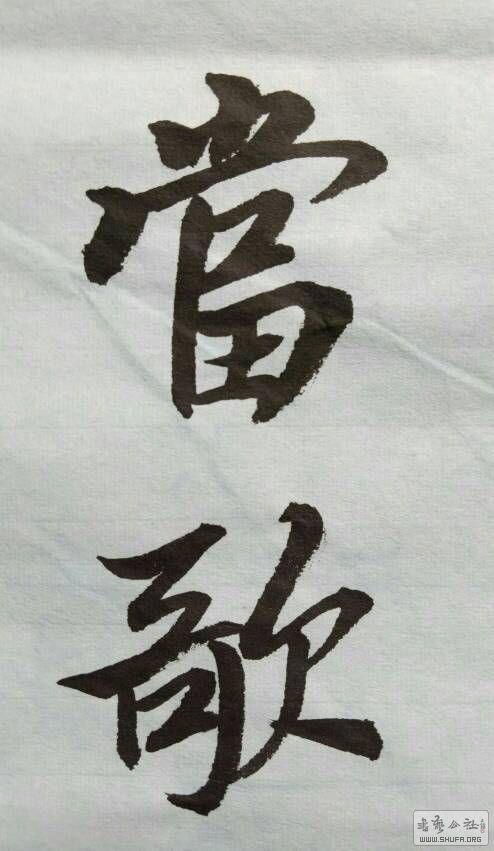 當歌
书艺公社
WWW.SHUFA.ORG